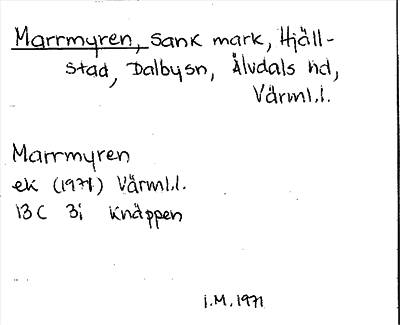 Marrmyren, sank mark, Hjäll-
stad, Dalbysn, Älvdals hd,
Värml.l.
Marrmyren
ek (1971) Värml.l.
13 C 3i Knäppen
I.M. 1971